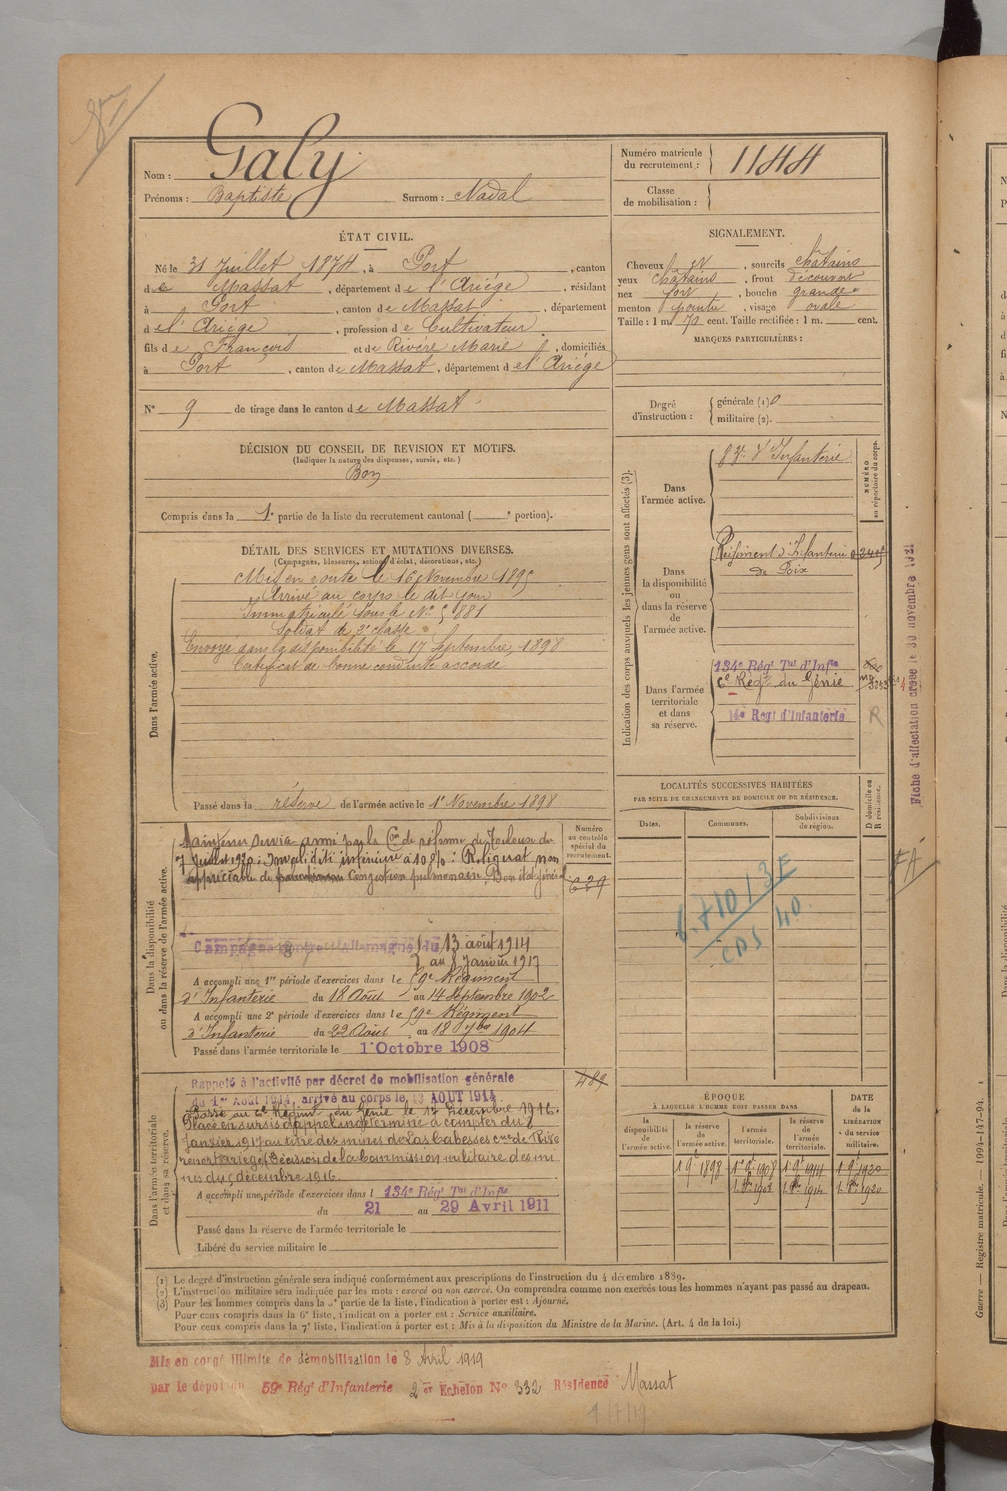 Nom : Galy
Prénoms : Baptiste Surnom : Nadal
Numéro matricule du recrutement : 1144
Classe de mobilisation :
ÉTAT CIVIL.
Né le 31 Juillet 1874, à Port, canton
de Massat, département de l'Ariège, résidant
à Port, canton de Massat, département
de l'Ariège, profession de Cultivateur
fils de François et de Rivère Marie, domiciliés
à Port, canton de Massat, département de l'Ariège
N° 9 de tirage dans le canton de Massat
SIGNALEMENT.
Cheveux et, sourcils châtains
yeux châtains, front découvert
nez fort, bouche grande
menton pointu, visage ovale
Taille : 1 m. 71 cent. Taille rectifiée : 1 m. cent.
MARQUES PARTICULIÈRES :
Degré d'instruction : générale (1) 0
militaire (2).
DÉCISION DU CONSEIL DE REVISION ET MOTIFS.
(Indiquer la nature des dispenses, sursis, etc.)
Bon
Compris dans la 1e partie de la liste du recrutement cantonal ( e portion).
DÉTAIL DES SERVICES ET MUTATIONS DIVERSES.
(Campagnes, blessures, actions d'éclat, décorations, etc.)
Dans l'armée active.
Mis en route le 16 Novembre 1895
Arrivé au corps le dit jour
Immatriculé sous le N° 5881
Soldat de 2e classe
Envoyé dans la disponibilité le 17 Septembre 1898
Certificat de bonne conduite accordé
Passé dans la réserve de l'armée active le 1er Novembre 1898
Indication des corps auxquels les jeunes gens sont affectés (3).
NUMÉRO au répertoire du corps.
Dans l'armée active.
d'Infanterie
Dans la disponibilité ou dans la réserve de l'armée active.
Régiment d'Infanterie
de Foix
Dans l'armée territoriale et dans sa réserve.
134e Régt Tal d'Infie
6e Régt du Génie
14e Régt d'Infanterie
R
Fiche d'affectation créée le 30 novembre 1921
Dans la disponibilité ou dans la réserve de l'armée active.
Numéro au contrôle spécial du recrutement.
Maintenu service armé par la Con de réforme de Toulouse du
7 Juillet 1920 : Invalidité inférieure à 10 % : Reliquat non
appréciable de Congestion pulmonaire. Bon état général
639
Campagne contre l'Allemagne du 13 août 1914
au 7 janvier 1917
A accompli une 1re période d'exercices dans le 59e Régiment
d'Infanterie du 18 Août au 14 Septembre 1902
A accompli une 2e période d'exercices dans le 59e Régiment
d'Infanterie du 22 Août au 18 7bre 1904
Passé dans l'armée territoriale le 1er Octobre 1908
LOCALITÉS SUCCESSIVES HABITÉES
PAR SUITE DE CHANGEMENTS DE DOMICILE OU DE RÉSIDENCE.
Dates. Communes. Subdivisions de région. D domicile ou R résidence.
FA
Dans l'armée territoriale et dans sa réserve.
Rappelé à l'activité par décret de mobilisation générale
du 1er Août 1914, arrivé au corps le 13 AOUT 1914
489
Passé au 6e Régimt du Génie le 17 Décembre 1916.
Placé en sursis d'appel indéterminé à compter du 8
Janvier 1917 au titre des mines de Las Cabesses cne de Rive
renert Ariège (Décision de la Commission militaire des mi
nes du 5 décembre 1916.
A accompli une période d'exercices dans l 134e Régt Tal d'Infie
du 21 au 29 Avril 1911
Passé dans la réserve de l'armée territoriale le
Libéré du service militaire le
ÉPOQUE À LAQUELLE L'HOMME DOIT PASSER DANS
la disponibilité de l'armée active. la réserve de l'armée active. l'armée territoriale. la réserve de l'armée territoriale.
DATE de la LIBÉRATION du service militaire.
1 9bre 1898 1er 9bre 1908 1 9bre 1914 1 9bre 1920
1 8bre 1908 1 8bre 1914 1 8bre 1920
(1) Le degré d'instruction générale sera indiqué conformément aux prescriptions de l'instruction du 4 décembre 1889.
(2) L'instruction militaire sera indiquée par les mots : exercé ou non exercé. On comprendra comme non exercés tous les hommes n'ayant pas passé au drapeau.
(3) Pour les hommes compris dans la 5e partie de la liste, l'indication à porter est : Ajourné.
Pour ceux compris dans la 6e liste, l'indication à porter est : Service auxiliaire.
Pour ceux compris dans la 7e liste, l'indication à porter est : Mis à la disposition du Ministre de la Marine. (Art. 4 de la loi.)
Mis en congé illimité de démobilisation le 8 Avril 1919
par le dépôt du 59e Régt d'Infanterie 2 er Echelon N° 332 Résidence Massat
Guerre — Registre matricule. — 1994-147-94.